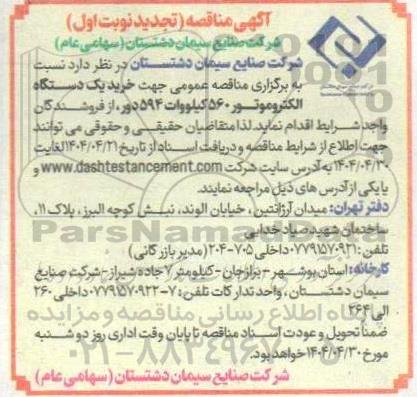 آگهی مناقصه (تجدید نوبت اول)
شرکت صنایع سیمان دشتستان (سهامی عام)
شرکت صنایع سیمان دشتستان در نظر دارد نسبت
به برگزاری مناقصه عمومی جهت خرید یک دستگاه
الکتروموتور ۵۶۰ کیلووات ۵۹۴ دور، از فروشندگان
واجد شرایط اقدام نماید. لذا متقاضیان حقیقی و حقوقی می توانند
جهت اطلاع از شرایط مناقصه و دریافت اسناد از تاریخ ۱۴۰۴/۰۴/۲۱ لغایت
۱۴۰۴/۰۴/۳۰ به آدرس سایت شرکت www.dashtestancement.com و
یا یکی از آدرس های ذیل مراجعه نمایند.
دفتر تهران: میدان آرژانتین، خیابان الوند، نبش کوچه البرز، پلاک ۱۱،
ساختمان شهید صیاد خدایی
تلفن: ۰۷۷۹۱۵۷۰۹۲۱ داخلی ۷۰۵-۲۰۴ (مدیر بازرگانی)
کارخانه: استان بوشهر - برازجان - کیلومتر ۷ جاده شیراز - شرکت صنایع
سیمان دشتستان، واحد تدارکات تلفن: ۷-۰۷۷۹۱۵۷۰۹۲۲ داخلی ۲۶۰
الی ۲۶۴
ضمناً تحویل و عودت اسناد مناقصه تا پایان وقت اداری روز دو شنبه
مورخ ۱۴۰۴/۰۴/۳۰ خواهد بود.
شرکت صنایع سیمان دشتستان (سهامی عام)
ParsNamad
پایگاه اطلاع رسانی مناقصه و مزایده